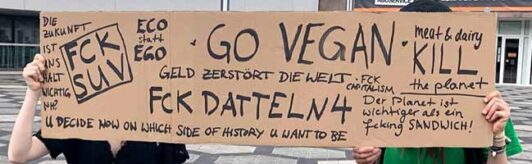 DIE
ZUKUNFT
IST
UNS
HALT
WICHTIG
NH!
FCK
SUV
ECO
statt
EGO
· GO VEGAN ·
meat & dairy
KILL
the planet
GELD ZERSTÖRT DIE WELT
· FCK
CAPITALISM.
FCK DATTELN 4
Der Planet ist
wichtiger als ein
fcking SANDWICH!
U DECIDE NOW ON WHICH SIDE OF HISTORY U WANT TO BE